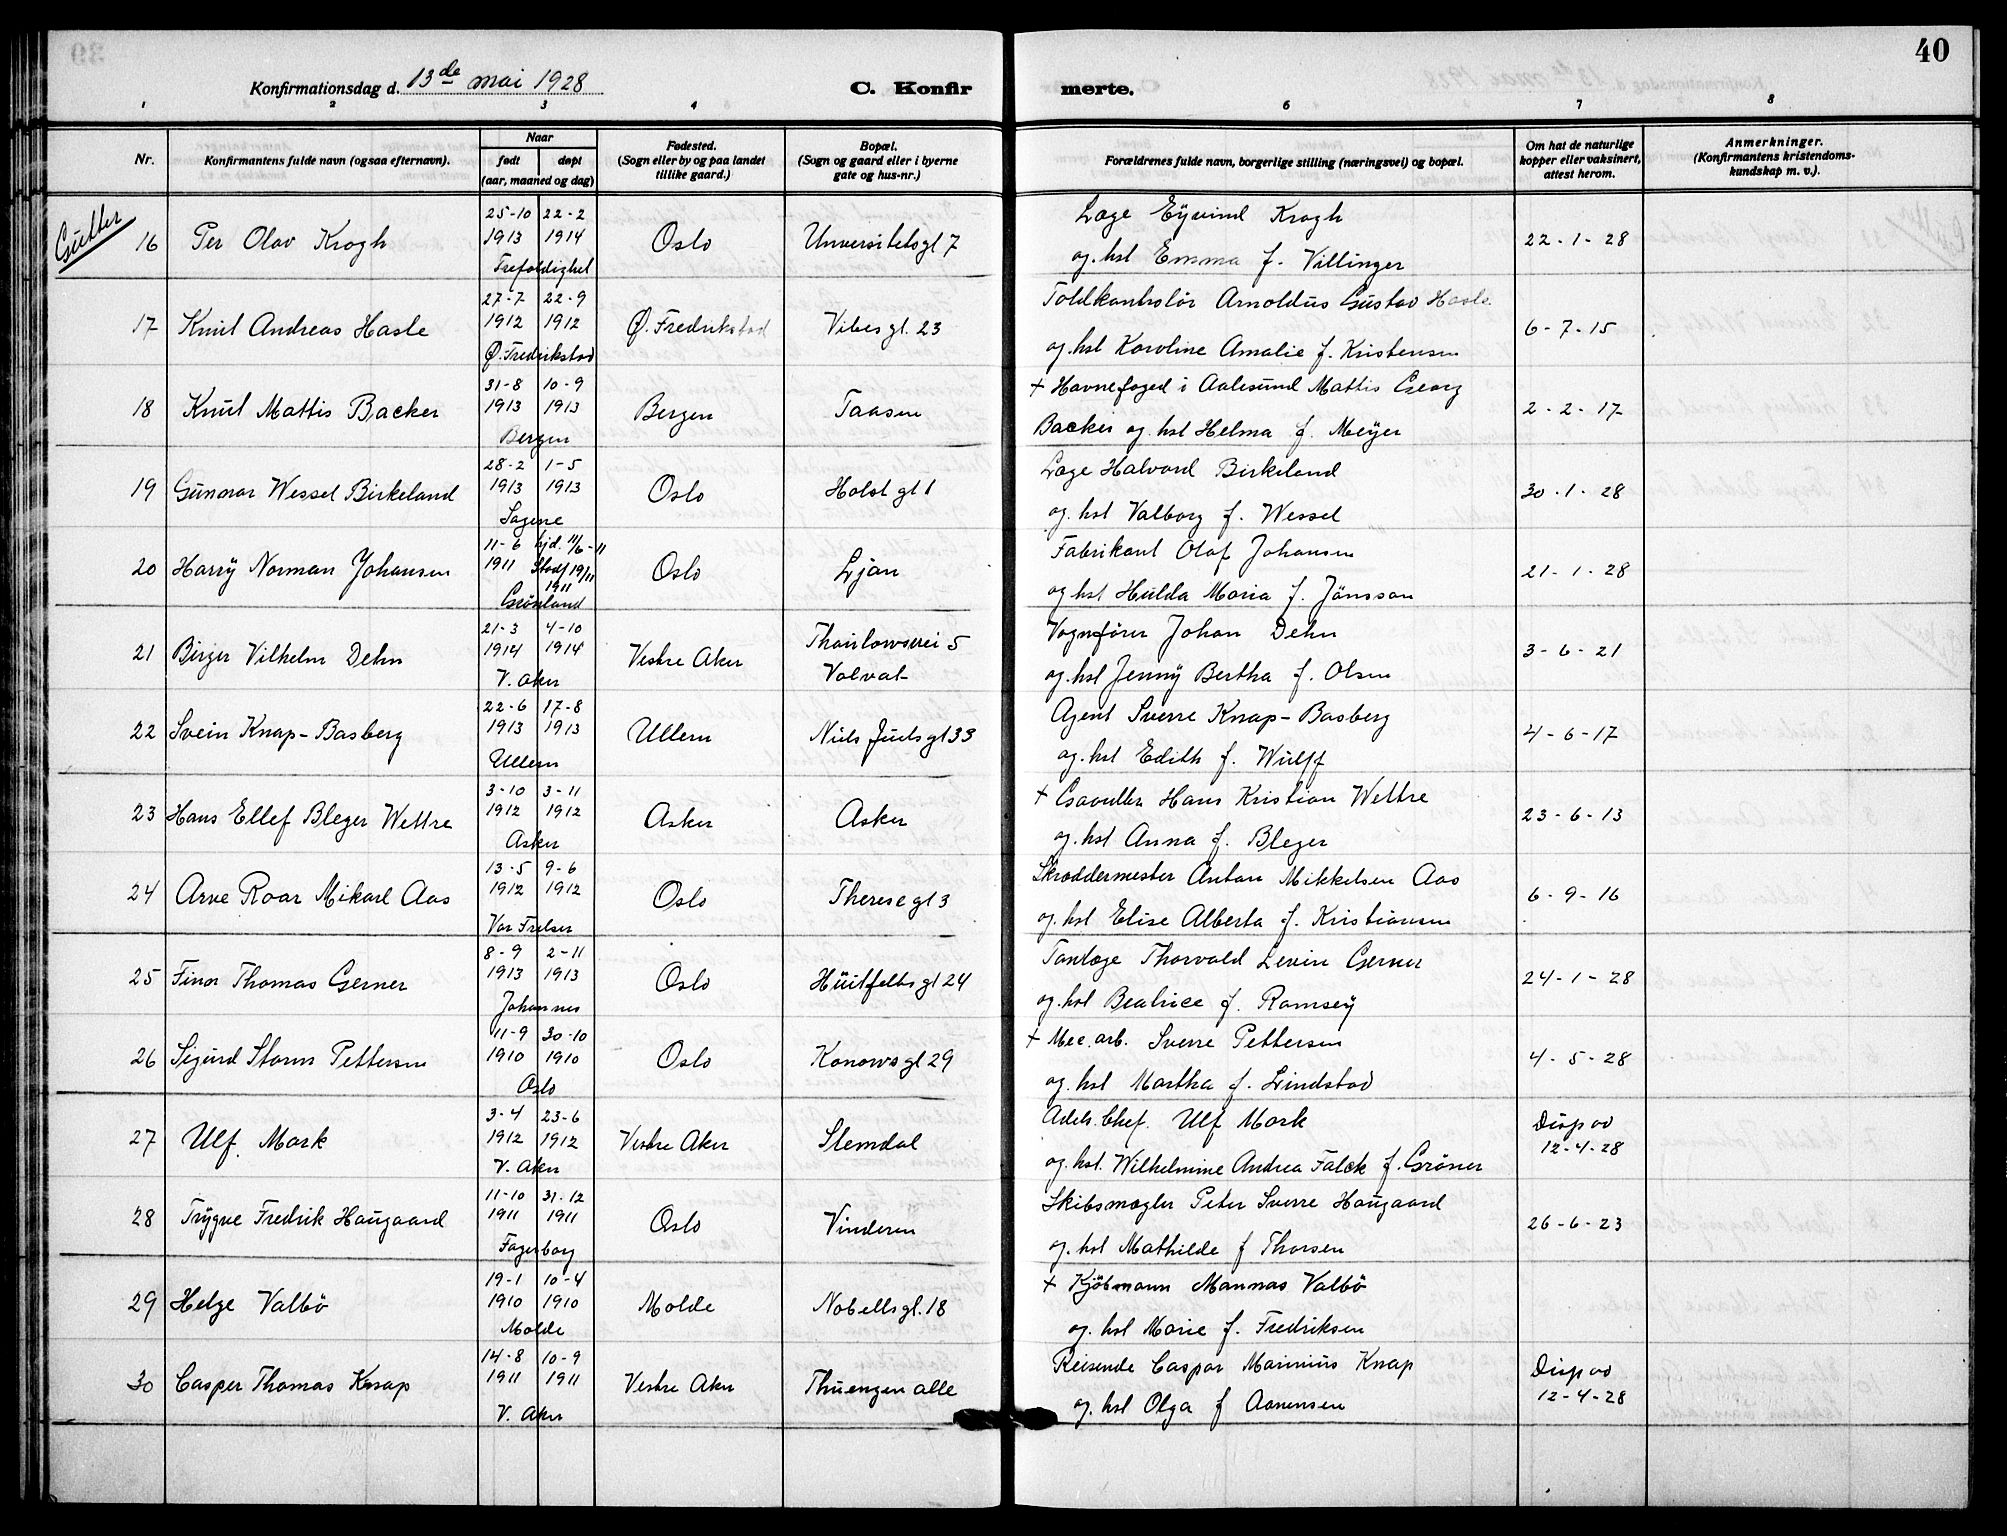 40
Konfirmationsdag d. 13de mai 1928
C. Konfirmerte.
1 2 3 4 6 7 8
Nr.
Konfirmantens fulde navn (ogsaa efternavn).
Naar
født døpt
(aar, maaned og dag)
Fødested.
(Sogn eller by og paa landet
tillike gaard.)
Bopæl.
(Sogn og gaard eller i byerne
gate og hus-nr.)
Forældrenes fulde navn, borgerlige stilling (næringsvei) og bopæl.
Om hat de naturlige
kopper eller vaksinert,
attest herom.
Anmerkninger.
(Konfirmantens kristendoms-
kundskap m. v.).
Gutter
16 Per Olav Krogh 25-10 1913 22-2 1914 Trefoldighet Oslo Universitetsgt 7
Læge Eyvind Krogh
og. hst Emma f. Villinger 22-1-28
17 Knut Andreas Hasle 27-7 1912 22-9 1912 Ø. Fredrikstad Ø. Fredrikstad Vibesgt. 23
Toldkontrolør Arnoldus Gustav Hasle
og. hst Karoline Amalie f. Kristensen 6-7-15
18 Knut Mattis Backer 31-8 1913 10-9 1913 Bergen Bergen Taasen
+ Havnefoged i Aalesund Mattis Georg
Backer og. hst Helma f. Meyer 2-2-17
19 Gunnar Wessel Birkeland 28-2 1913 1-5 1913 Sagene Oslo Holst gt 1
Læge Halvard Birkeland
og. hst Valborg f. Wessel 30-1-28
20 Harry Norman Johansen 11-6 1911 hjd. 11/6-11 Stadf 19/11 1911 Grønland Oslo Ljan
Fabrikant Olaf Johansen
og hst Hulda Maria f. Jönsson 21-1-28
21 Birger Vilhelm Dehn 21-3 1914 4-10 1914 V. Aker Vestre Aker Thaulowsvei 5 Volvat
Vognfører Johan Dehn
og. hst Jenny Bertha f. Olsen 3-6-21
22 Svein Knap-Basberg 22-6 1913 17-8 1913 Ullern Ullern Niels Juels gt 33
Agent Sverre Knap-Basberg
og. hst Edith f. Wulff 4-6-17
23 Hans Ellef Bleger Wettre 3-10 1912 3-11 1912 Asker Asker Asker
+ Hans Kristian Wettre
og. hst Anna f. Bleger 23-6-13
24 Arve Roar Mikael Aas 13-5 1912 9-6 1912 Vor Frelser Oslo Therese gt 3
Skræddermester Anton Mikkelsen Aas
og. hst Elise Alberta f. Kristiansen 6-9-16
25 Finn Thomas Gerner 8-9 1913 2-11 1913 Johannes Oslo Huitfeltsgt 24
Tanlæge Thorvald Levin Gerner
og. hst Beatrice f. Ramsey 24-1-28
26 Sigurd Storm Pettersen 11-9 1910 30-10 1910 Oslo Oslo Konowsgt 29
+ Mec. arb. Sverre Pettersen
og. hst Martha f. Lindstad 4-5-28
27 Ulf Mork 3-4 1912 23-6 1912 V. Aker Vestre Aker Slemdal
Chef. Ulf Mork
og. hst. Wilhelmine Andrea Falck f. Gröner Disp av 12-4-28
28 Trygve Fredrik Haugaard 11-10 1911 31-12 1911 Fagerborg Oslo Vinderen
Skibsmægler Peter Sverre Haugaard
og. hst Mathilde f Thorsen 26-6-23
29 Helge Valbö 19-1 1910 10-4 1910 Molde Molde Nobelsgt. 18
+ Kjöbmann Mannas Valbö
og. hst Marie f. Fredriksen
30 Casper Thomas Knap 14-8 1911 10-9 1911 V. Aker Vestre Aker Thuengen alle
Reisende Caspar Marinius Knap
og. hst Olga f Aanensen Disp av 12-4-28